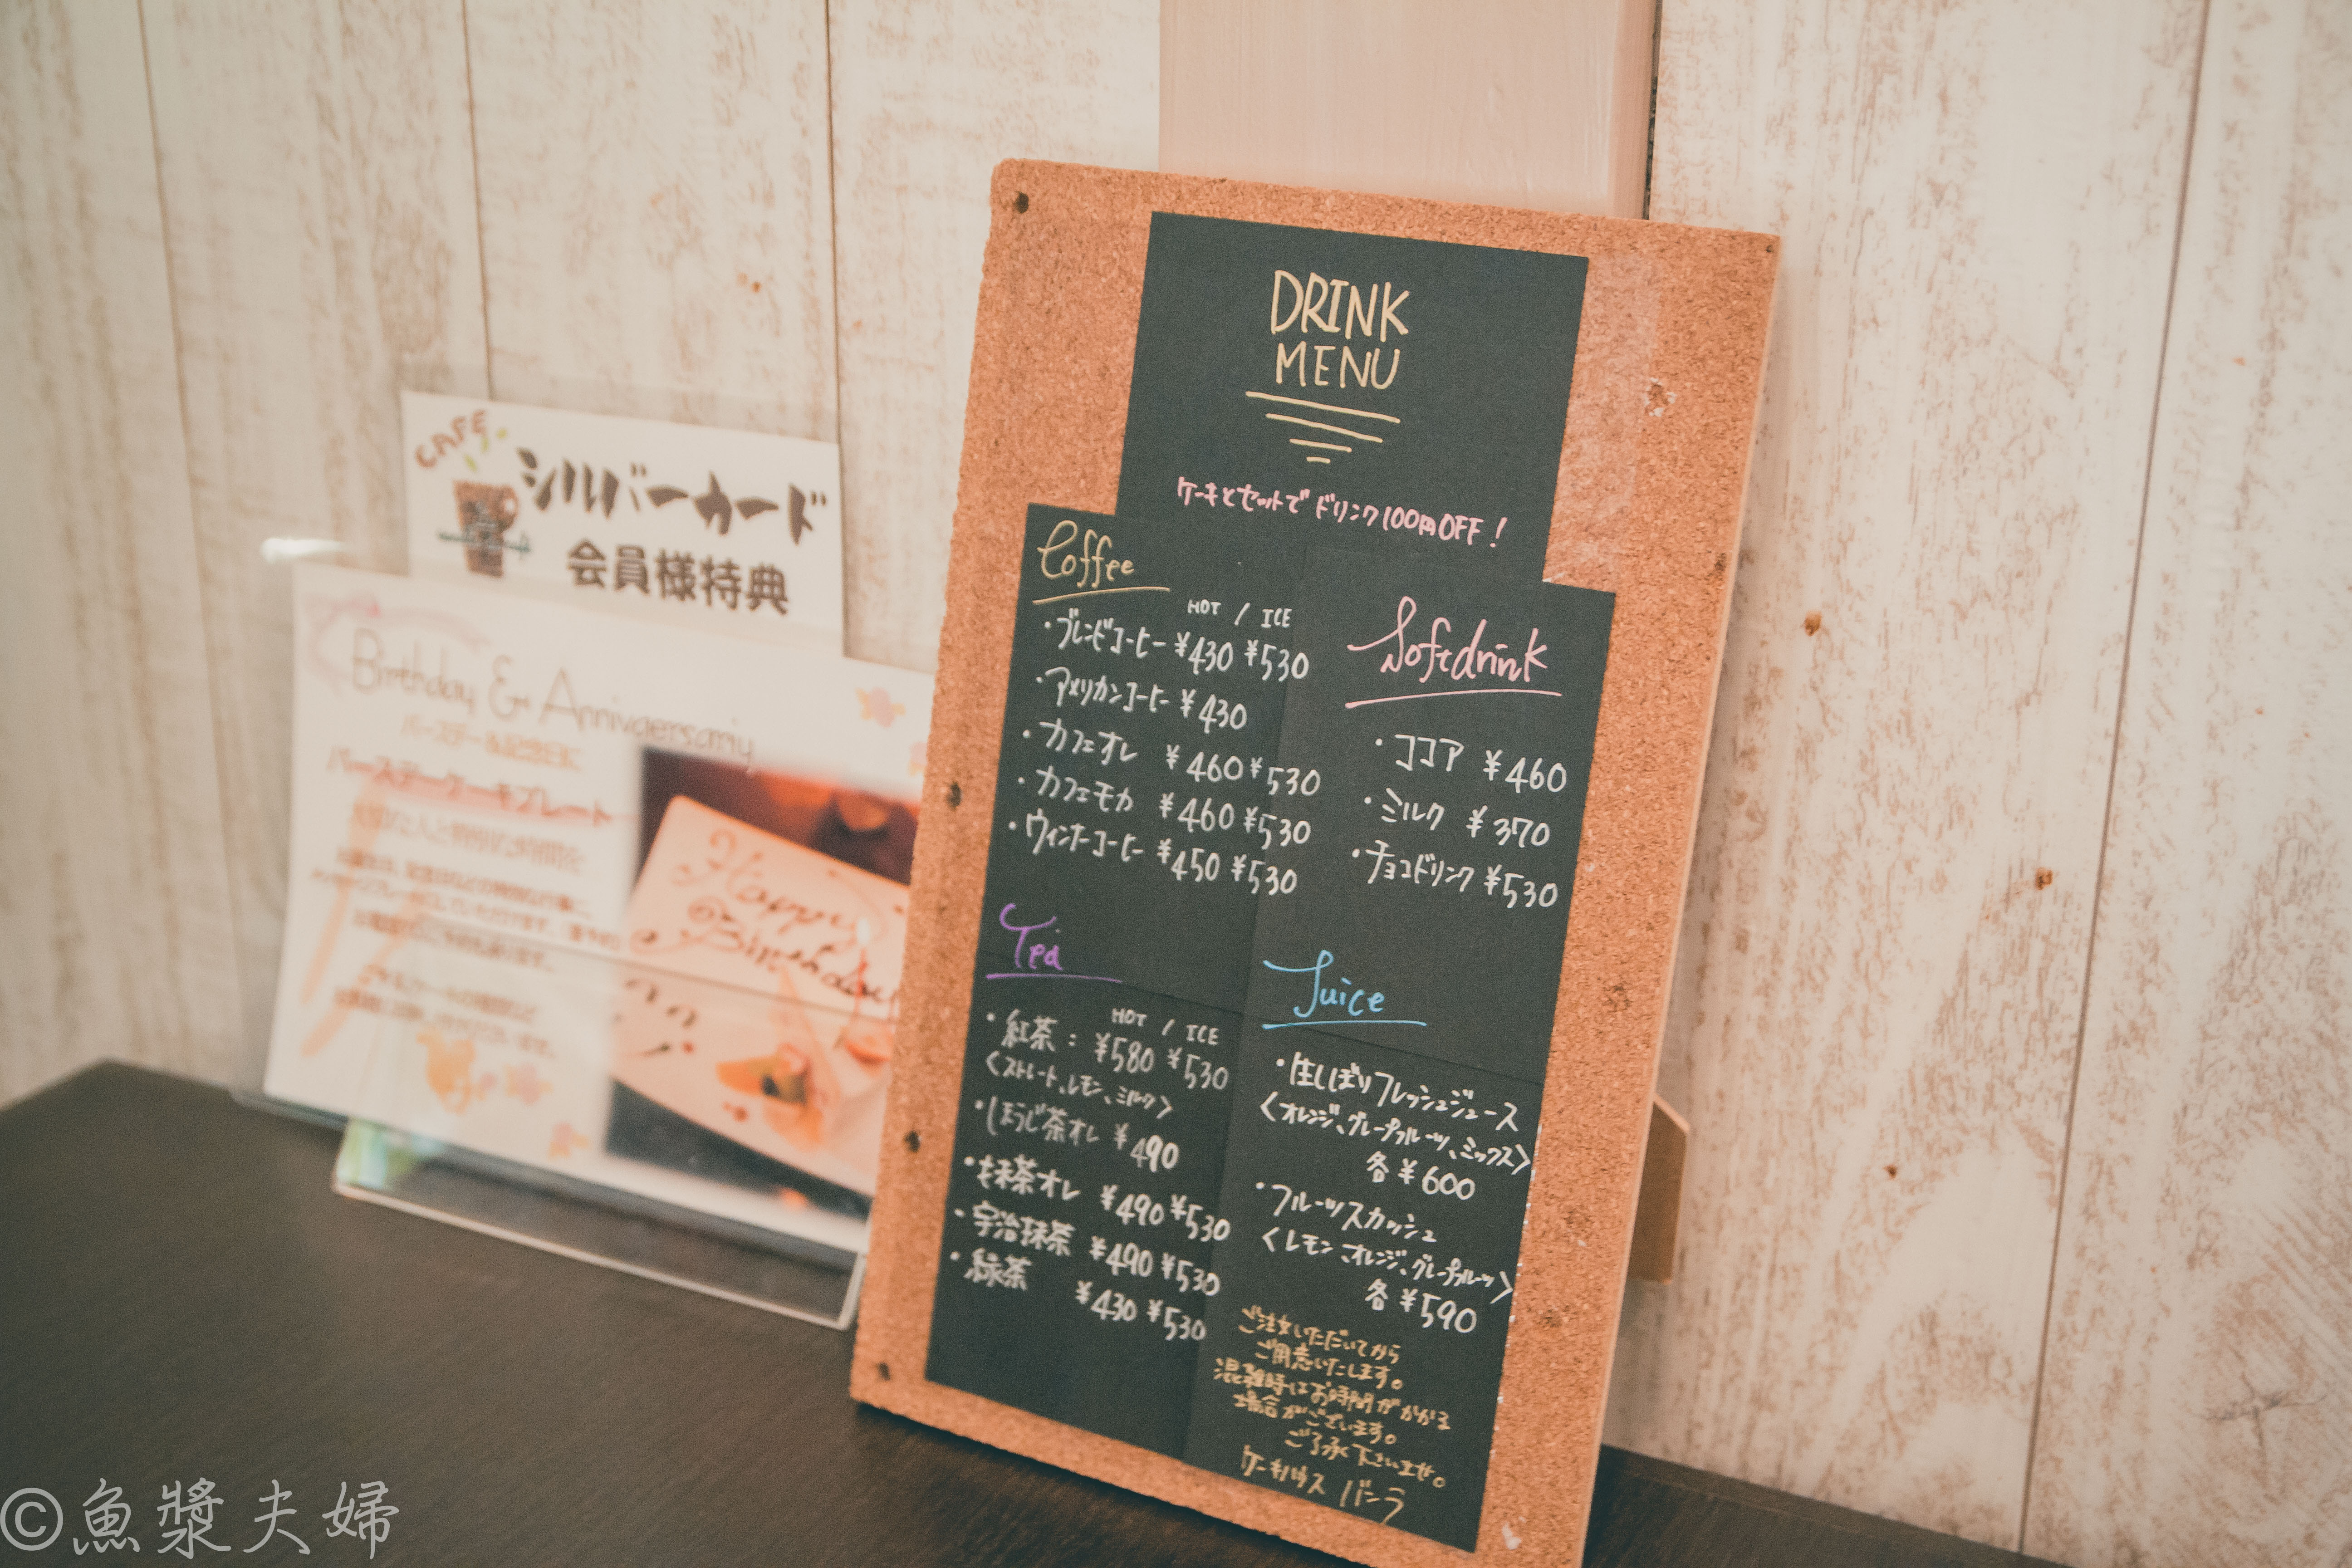 CAFE
シルバーカード
会員様特典
Birthday & Annivaersariy
バースデー&記念日に
バースデーケーキプレート
Happy
Birthday
DRINK
MENU
ケーキとセットで ドリンク100円OFF!
Coffee
HOT / ICE
・ブレンドコーヒー ¥430 ¥530
・アメリカンコーヒー ¥430
・カフェオレ ¥460 ¥530
・カフェモカ ¥460 ¥530
・ウィンナーコーヒー ¥450 ¥530
Tea
HOT / ICE
・紅茶: ¥580 ¥530
<ストレート、レモン、ミルク>
・ほうじ茶オレ ¥490
・抹茶オレ ¥490 ¥530
・宇治抹茶 ¥490 ¥530
・緑茶 ¥430 ¥530
Softdrink
・ココア ¥460
・ミルク ¥370
・チョコドリンク ¥530
Juice
・生しぼりフレッシュジュース
<オレンジ、グレープフルーツ、ミックス>
各 ¥600
・フルーツスカッシュ
<レモン、オレンジ、グレープフルーツ>
各 ¥590
ご注文いただいてから
ご用意いたします。
混雑時はお時間がかかる
場合がございます。
ご了承下さいませ。
ケーキハウス バーラ
©魚漿夫婦